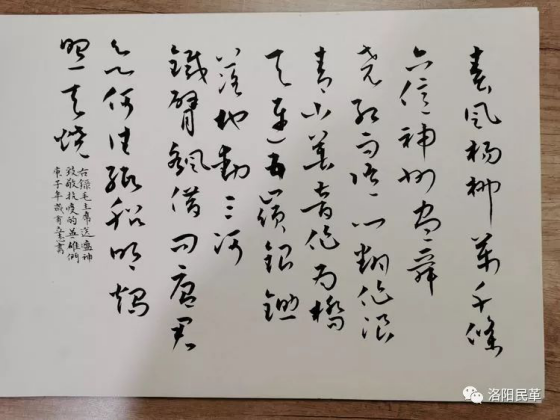 春风杨柳萬千條
六億神州尽舜
尧红雨随心翻作浪
青山着意化为橋
天连五嶺銀鋤
落地动三河
鐵臂摇借问瘟君
欲何往纸船明烛
照天烧
右録毛主席送瘟神
致敬抗疫的英雄们
庚子年
洛阳民革